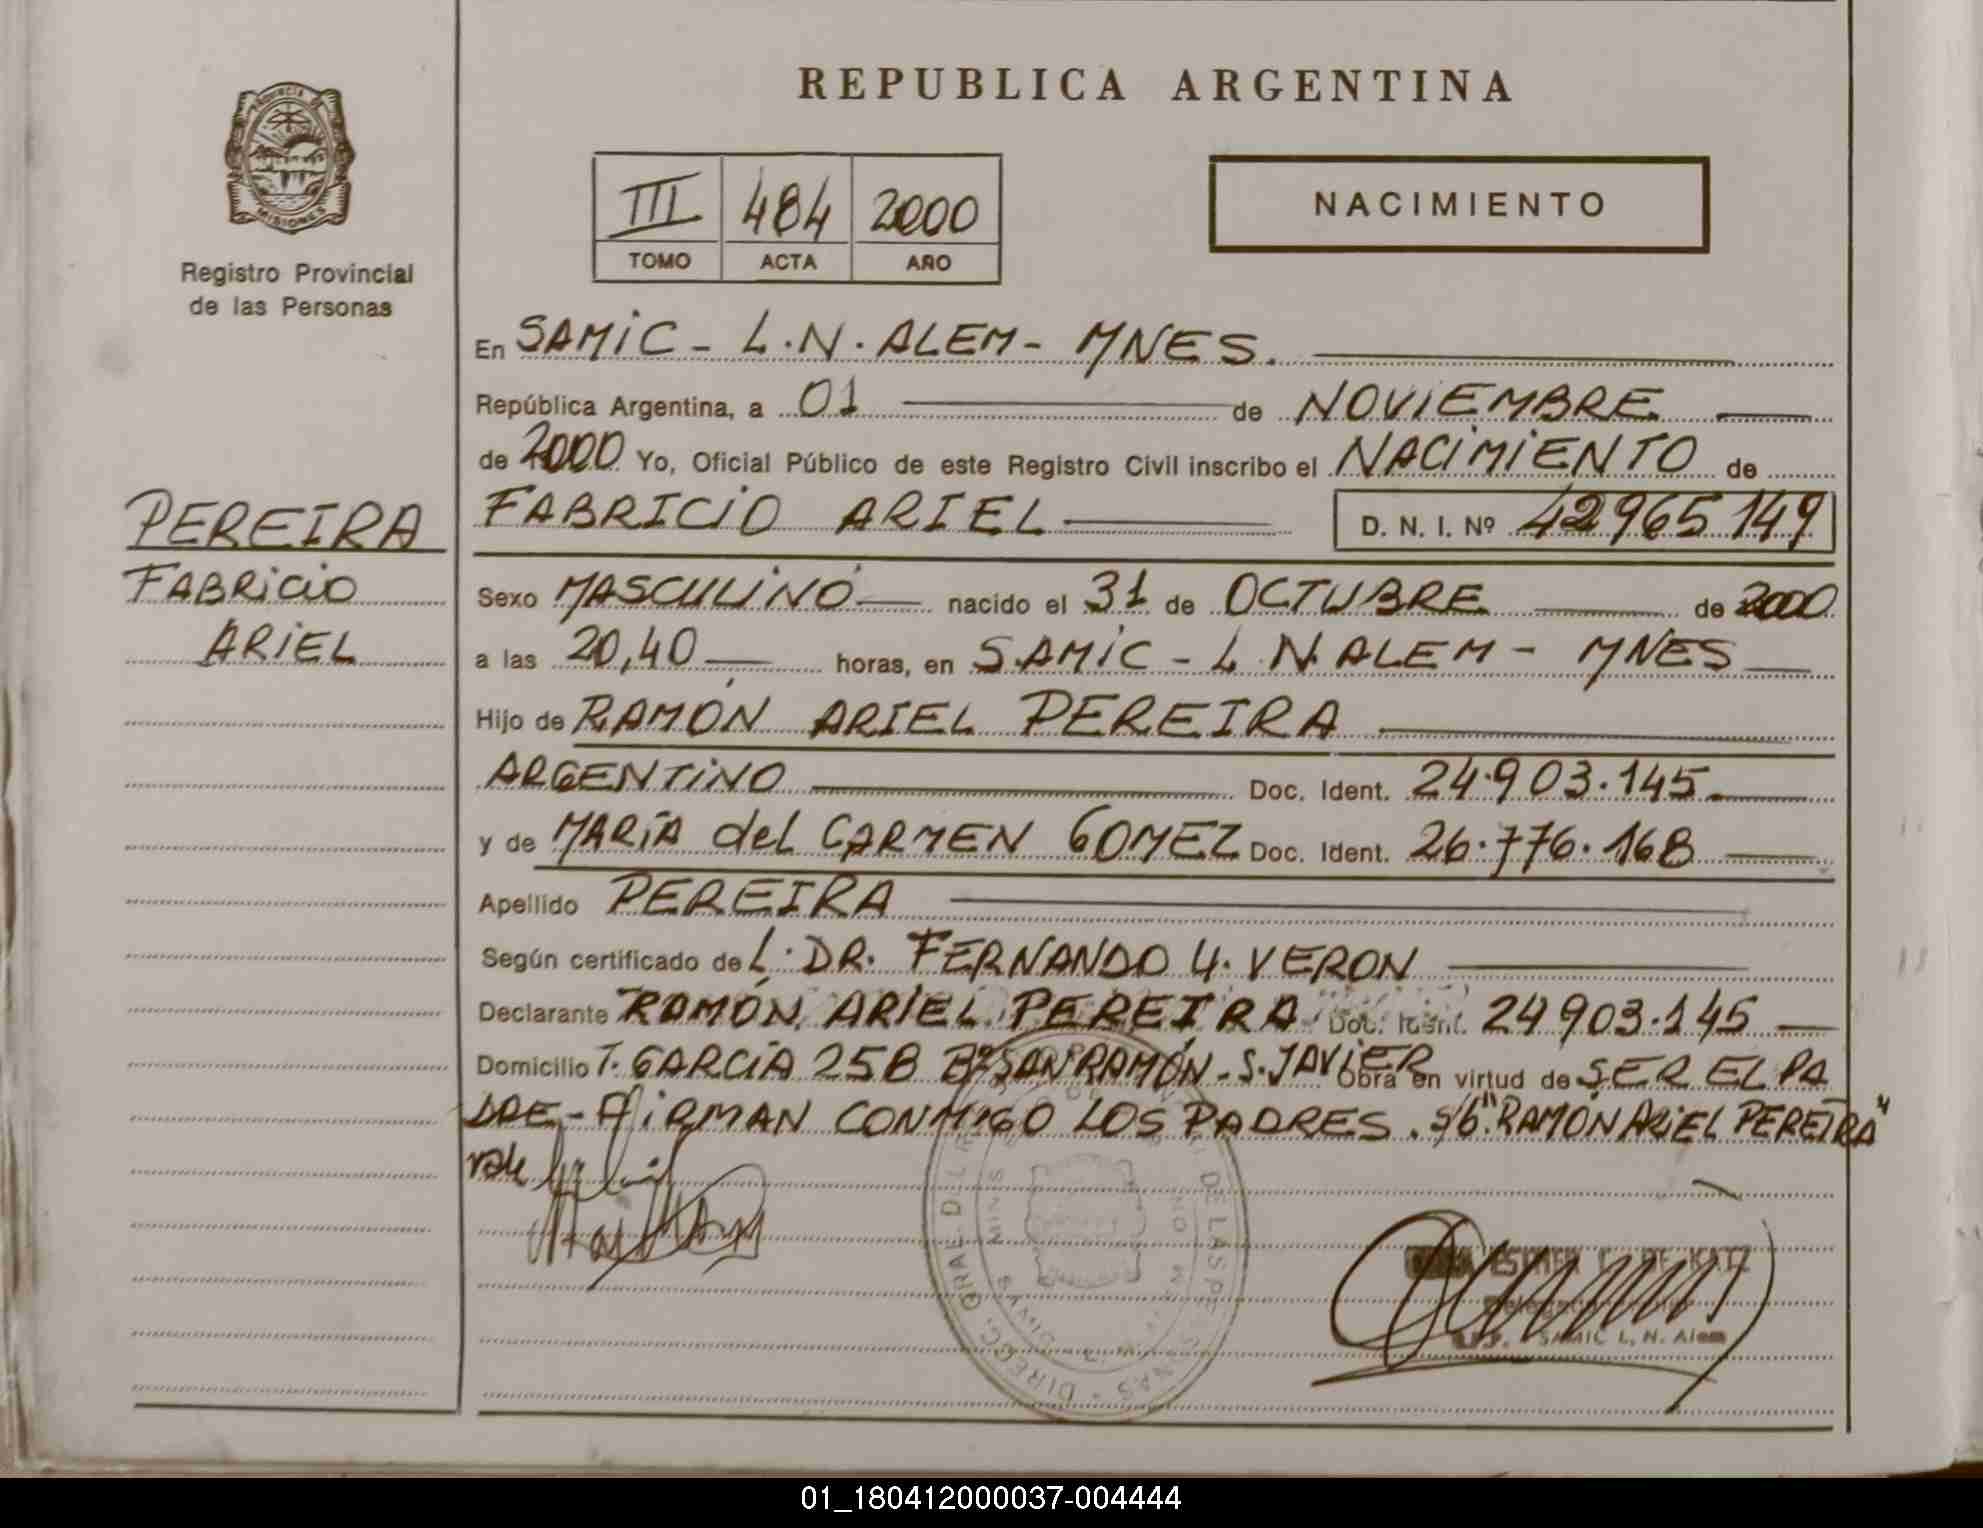 REPUBLICA ARGENTINA
PROVINCIA DE
MISIONES
Registro Provincial
de las Personas
III 484 2000
TOMO ACTA AÑO
NACIMIENTO
En SAMIC - L.N. ALEM - MNES.
República Argentina, a 01 de NOVIEMBRE
de 2000 Yo, Oficial Público de este Registro Civil inscribo el NACIMIENTO de
FABRICIO ARIEL D. N. I. Nº 42965149
PEREIRA
FABRICIO
ARIEL
Sexo MASCULINO nacido el 31 de OCTUBRE de 2000
a las 20,40 horas, en SAMIC - L.N. ALEM - MNES
Hijo de RAMÓN ARIEL PEREIRA
ARGENTINO Doc. Ident. 24.903.145
y de MARÍA del CARMEN GOMEZ Doc. Ident. 26.776.168
Apellido PEREIRA
Según certificado de L. DR. FERNANDO U. VERON
Declarante RAMÓN ARIEL PEREIRA Doc. Ident. 24903.145
Domicilio T. GARCÍA 258 Bº SAN RAMÓN - S. JAVIER Obra en virtud de SER EL PA
DRE - FIRMAN CONMIGO LOS PADRES. S/b "RAMÓN ARIEL PEREIRA"
vale
DE KATZ
SAMIC L. N. Alem
01_180412000037-004444